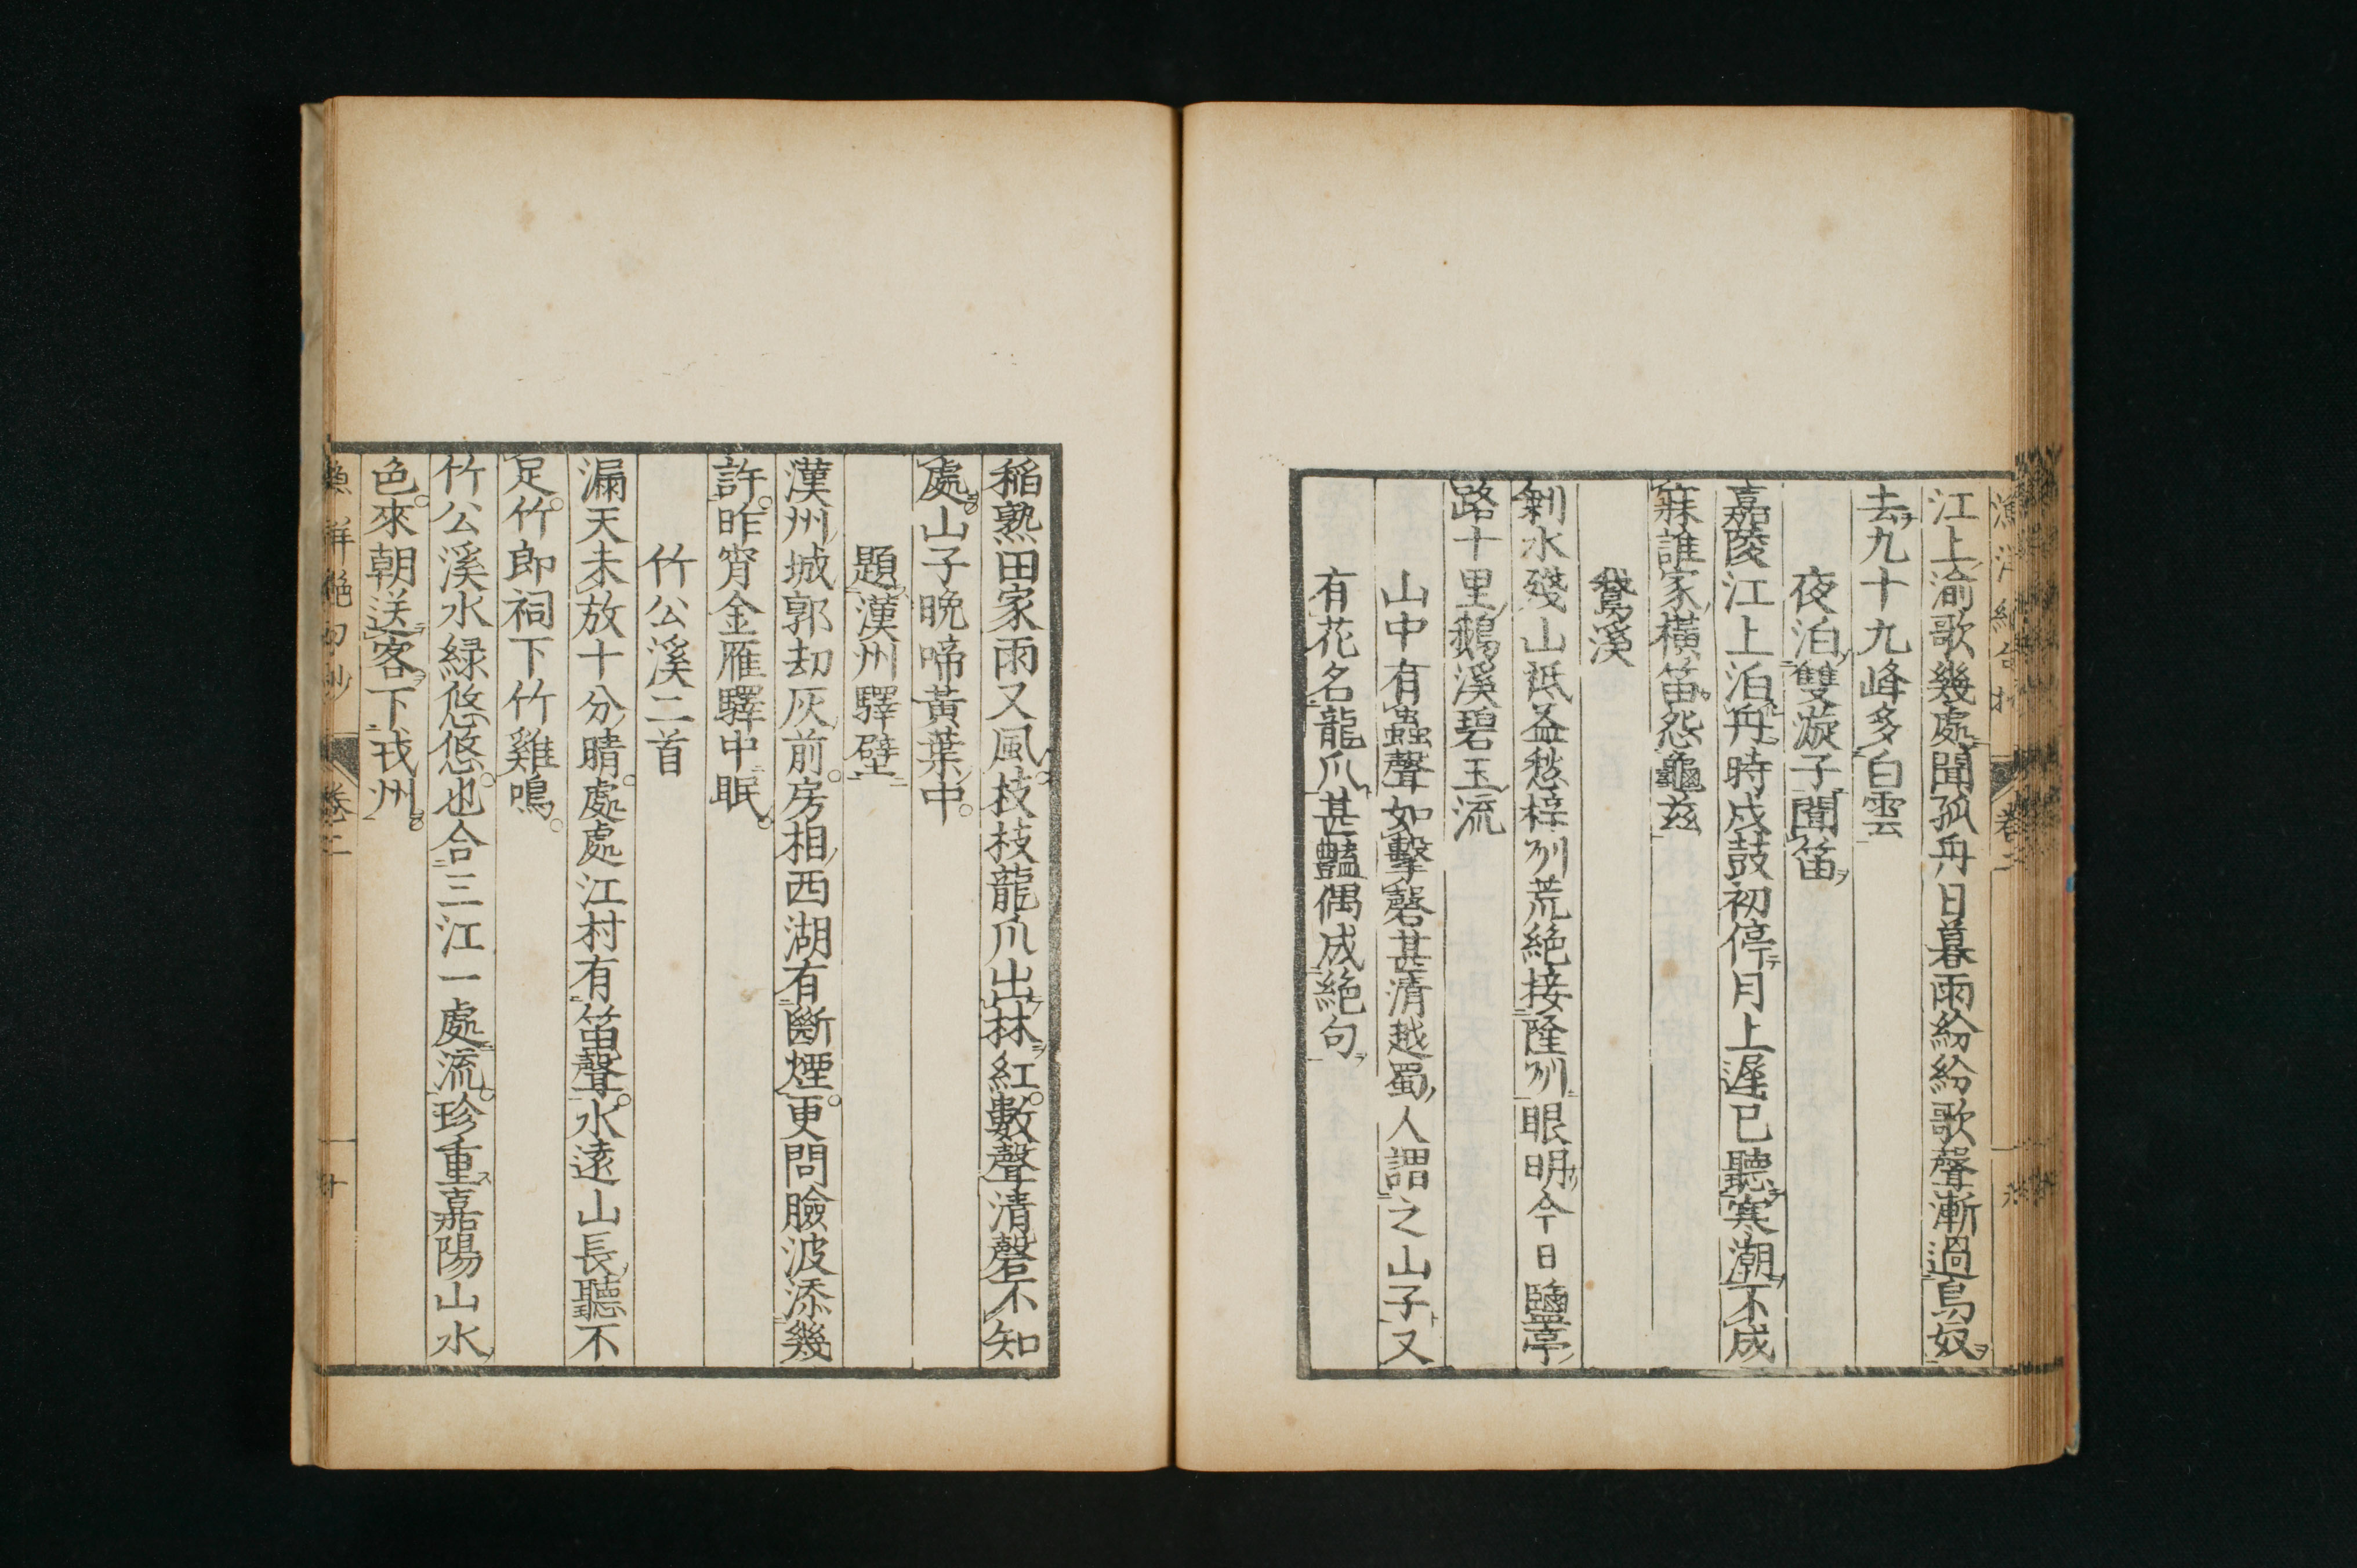 江上渝歌幾處聞孤舟日暮雨紛紛歌聲漸過烏奴
去九十九峰多白雲
夜泊雙漩子聞笛
嘉陵江上泊舟時戍鼓初停月上遲已聽寒潮不成
寐誰家橫笛怨龜茲
鵞溪
剩水殘山祗益愁梓州荒絕接隆州眼明今日鹽亭
路十里鵝溪碧玉流
山中有蟲聲如擊磬甚清越蜀人謂之山子又
有花名龍爪甚豔偶成絕句
稻熟田家雨又風枝枝龍爪出林紅數聲清磬不知
處山子晚啼黃葉中
題漢州驛壁
漢州城郭刧灰前房相西湖有斷煙更問臉波添幾
許昨宵金雁驛中眠
竹公溪二首
漏天未放十分晴處處江村有笛聲水遠山長聽不
足竹郎祠下竹雞鳴
竹公溪水綠悠悠也合三江一處流珍重嘉陽山水
色來朝送客下戎州
卷二